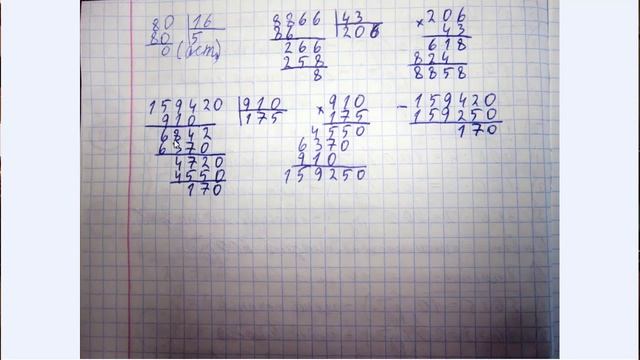 80 16
80 5
0 (ост)
8866 43
86 206
266
258
8
× 206
43
618
824
8858
159420 910
910 175
6842
6370
4720
4550
170
× 910
175
4550
6370
910
159250
- 159420
159250
170